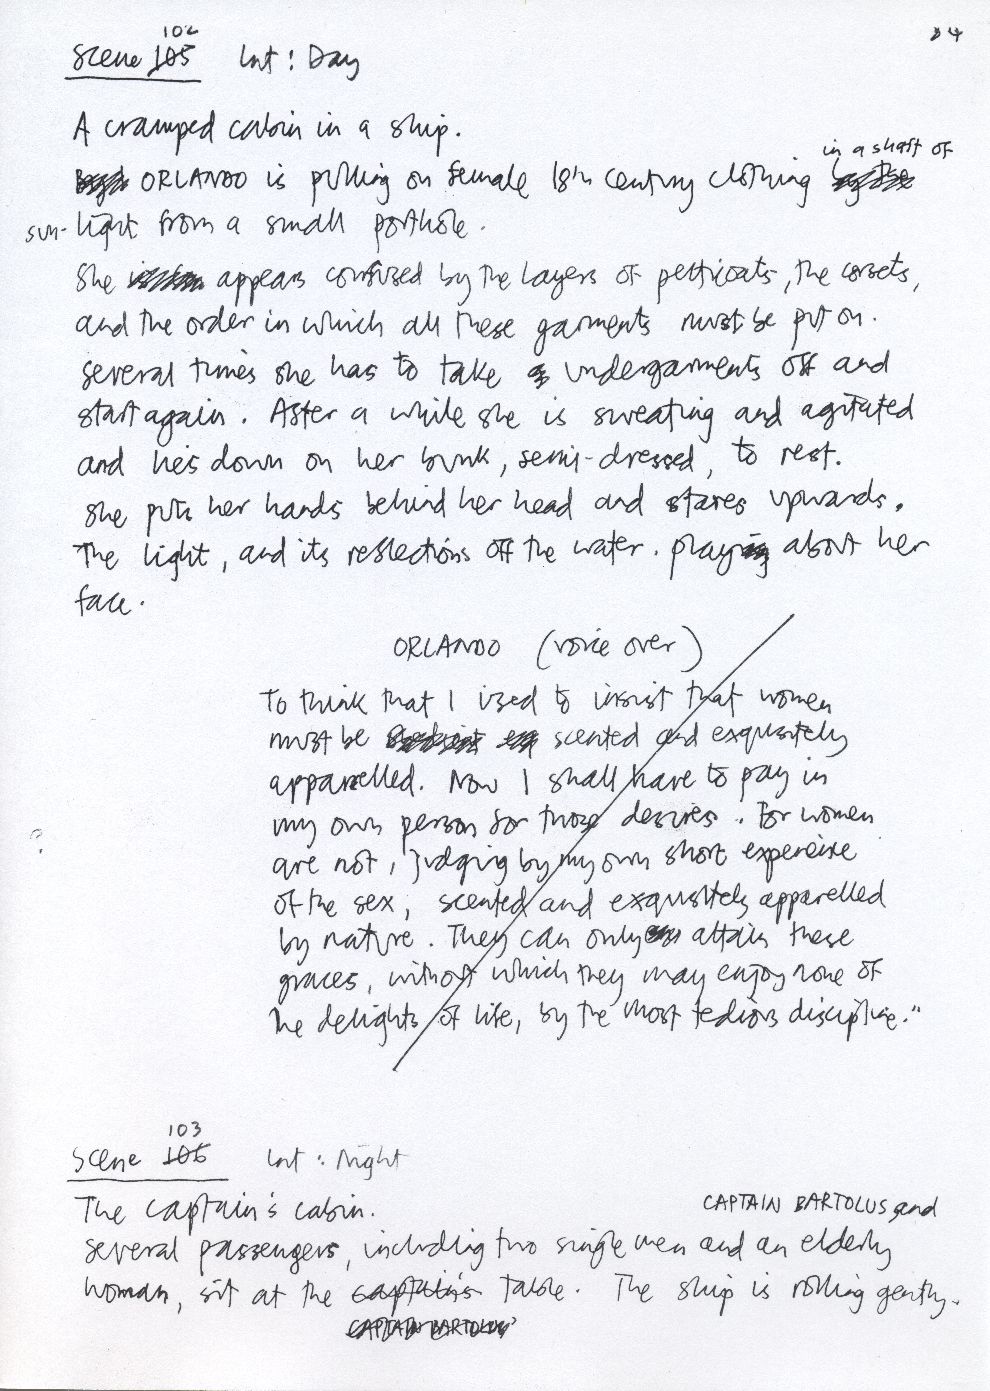 102
34
Scene 105 Int : Day
A cramped cabin in a ship.
in a shaft of
ORLANDO is pulling on female 18th century clothing
sun-light from a small porthole.
She appears confused by the layers of petticoats, the corsets,
and the order in which all these garments must be put on.
Several times she has to take undergarments off and
start again. After a while she is sweating and agitated
and lies down on her bunk, semi-dressed, to rest.
She puts her hands behind her head and stares upwards.
The light, and its reflections off the water. play about her
face.
ORLANDO (voice over)
To think that I used to insist that women
must be scented and exquisitely
apparelled. Now I shall have to pay in
my own person for those desires. For women
are not, judging by my own short experience
of the sex, scented and exquisitely apparelled
by nature. They can only attain these
graces, without which they may enjoy none of
the delights of life, by the most tedious discipline."
?
103
Scene 106 Int : Night
The captain's cabin. CAPTAIN BARTOLUS and
several passengers, including two single men and an elderly
woman, sit at the captain's table. The ship is rolling gently.
CAPTAIN BARTOLUS'